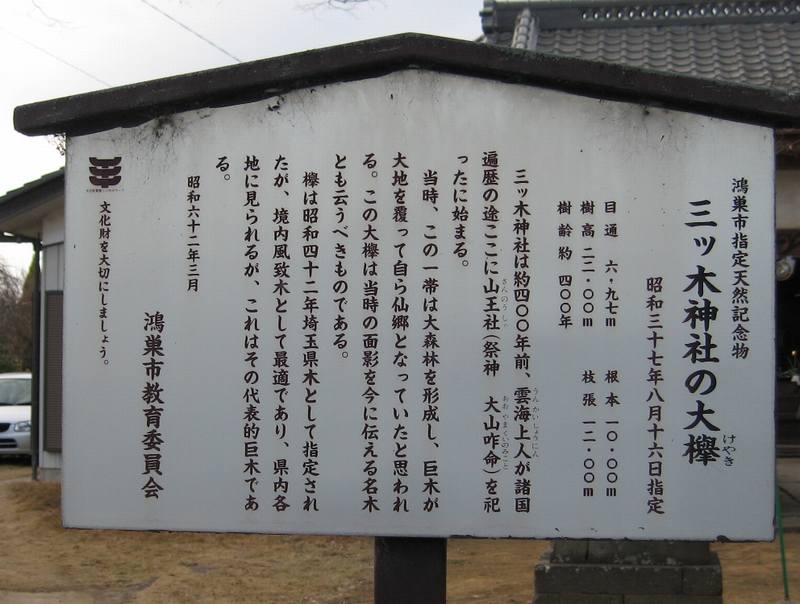 鴻巣市指定天然記念物
三ッ木神社の大欅
けやき
昭和三十七年八月十六日指定
目通 六・九七m 根本 一〇・〇〇m
樹高 二二・〇〇m 枝張 一二・〇〇m
樹齢約 四〇〇年
三ッ木神社は約四〇〇年前、雲海上人が諸国
うんかいしょうにん
遍歴の途ここに山王社(祭神 大山咋命)を祀
さんのうしゃ おおやまくいのみこと
ったに始まる。
当時、この一帯は大森林を形成し、巨木が
大地を覆って自ら仙郷となっていたと思われ
る。この大欅は当時の面影を今に伝える名木
とも云うべきものである。
欅は昭和四十二年埼玉県木として指定され
たが、境内風致木として最適であり、県内各
地に見られるが、これはその代表的巨木であ
る。
昭和六十二年三月
鴻巣市教育委員会
文化財を大切にしましょう。